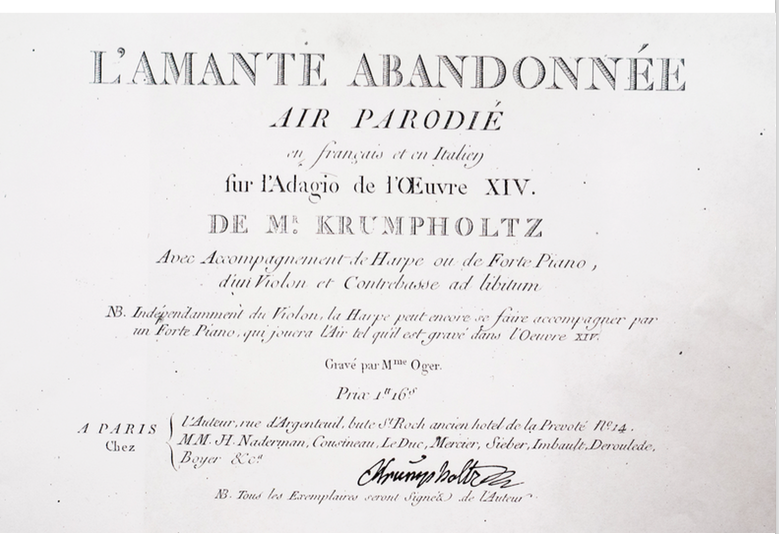 L'AMANTE ABANDONNÉE
AIR PARODIÉ
en français et en Italien
sur l'Adagio de l'Œuvre XIV.
DE MR. KRUMPHOLTZ
Avec Accompagnement de Harpe ou de Forte Piano,
d'un Violon et Contrebasse ad libitum
NB. Indépendamment du Violon, la Harpe peut encore se faire accompagner par
un Forte Piano, qui jouera l'Air tel qu'il est gravé dans l'Oeuvre XIV.
Gravé par Mme Oger.
Prix 1tt 16s
A PARIS
Chez
l'Auteur, rue d'Argenteuil, bute St Roch ancien hotel de la Prevoté No. 14.
MM. H. Naderman, Cousineau, Le Duc, Mercier, Sieber, Imbault, Deroulede,
Boyer &ca
Krumpholtz
NB. Tous les Exemplaires seront Signés de l'Auteur